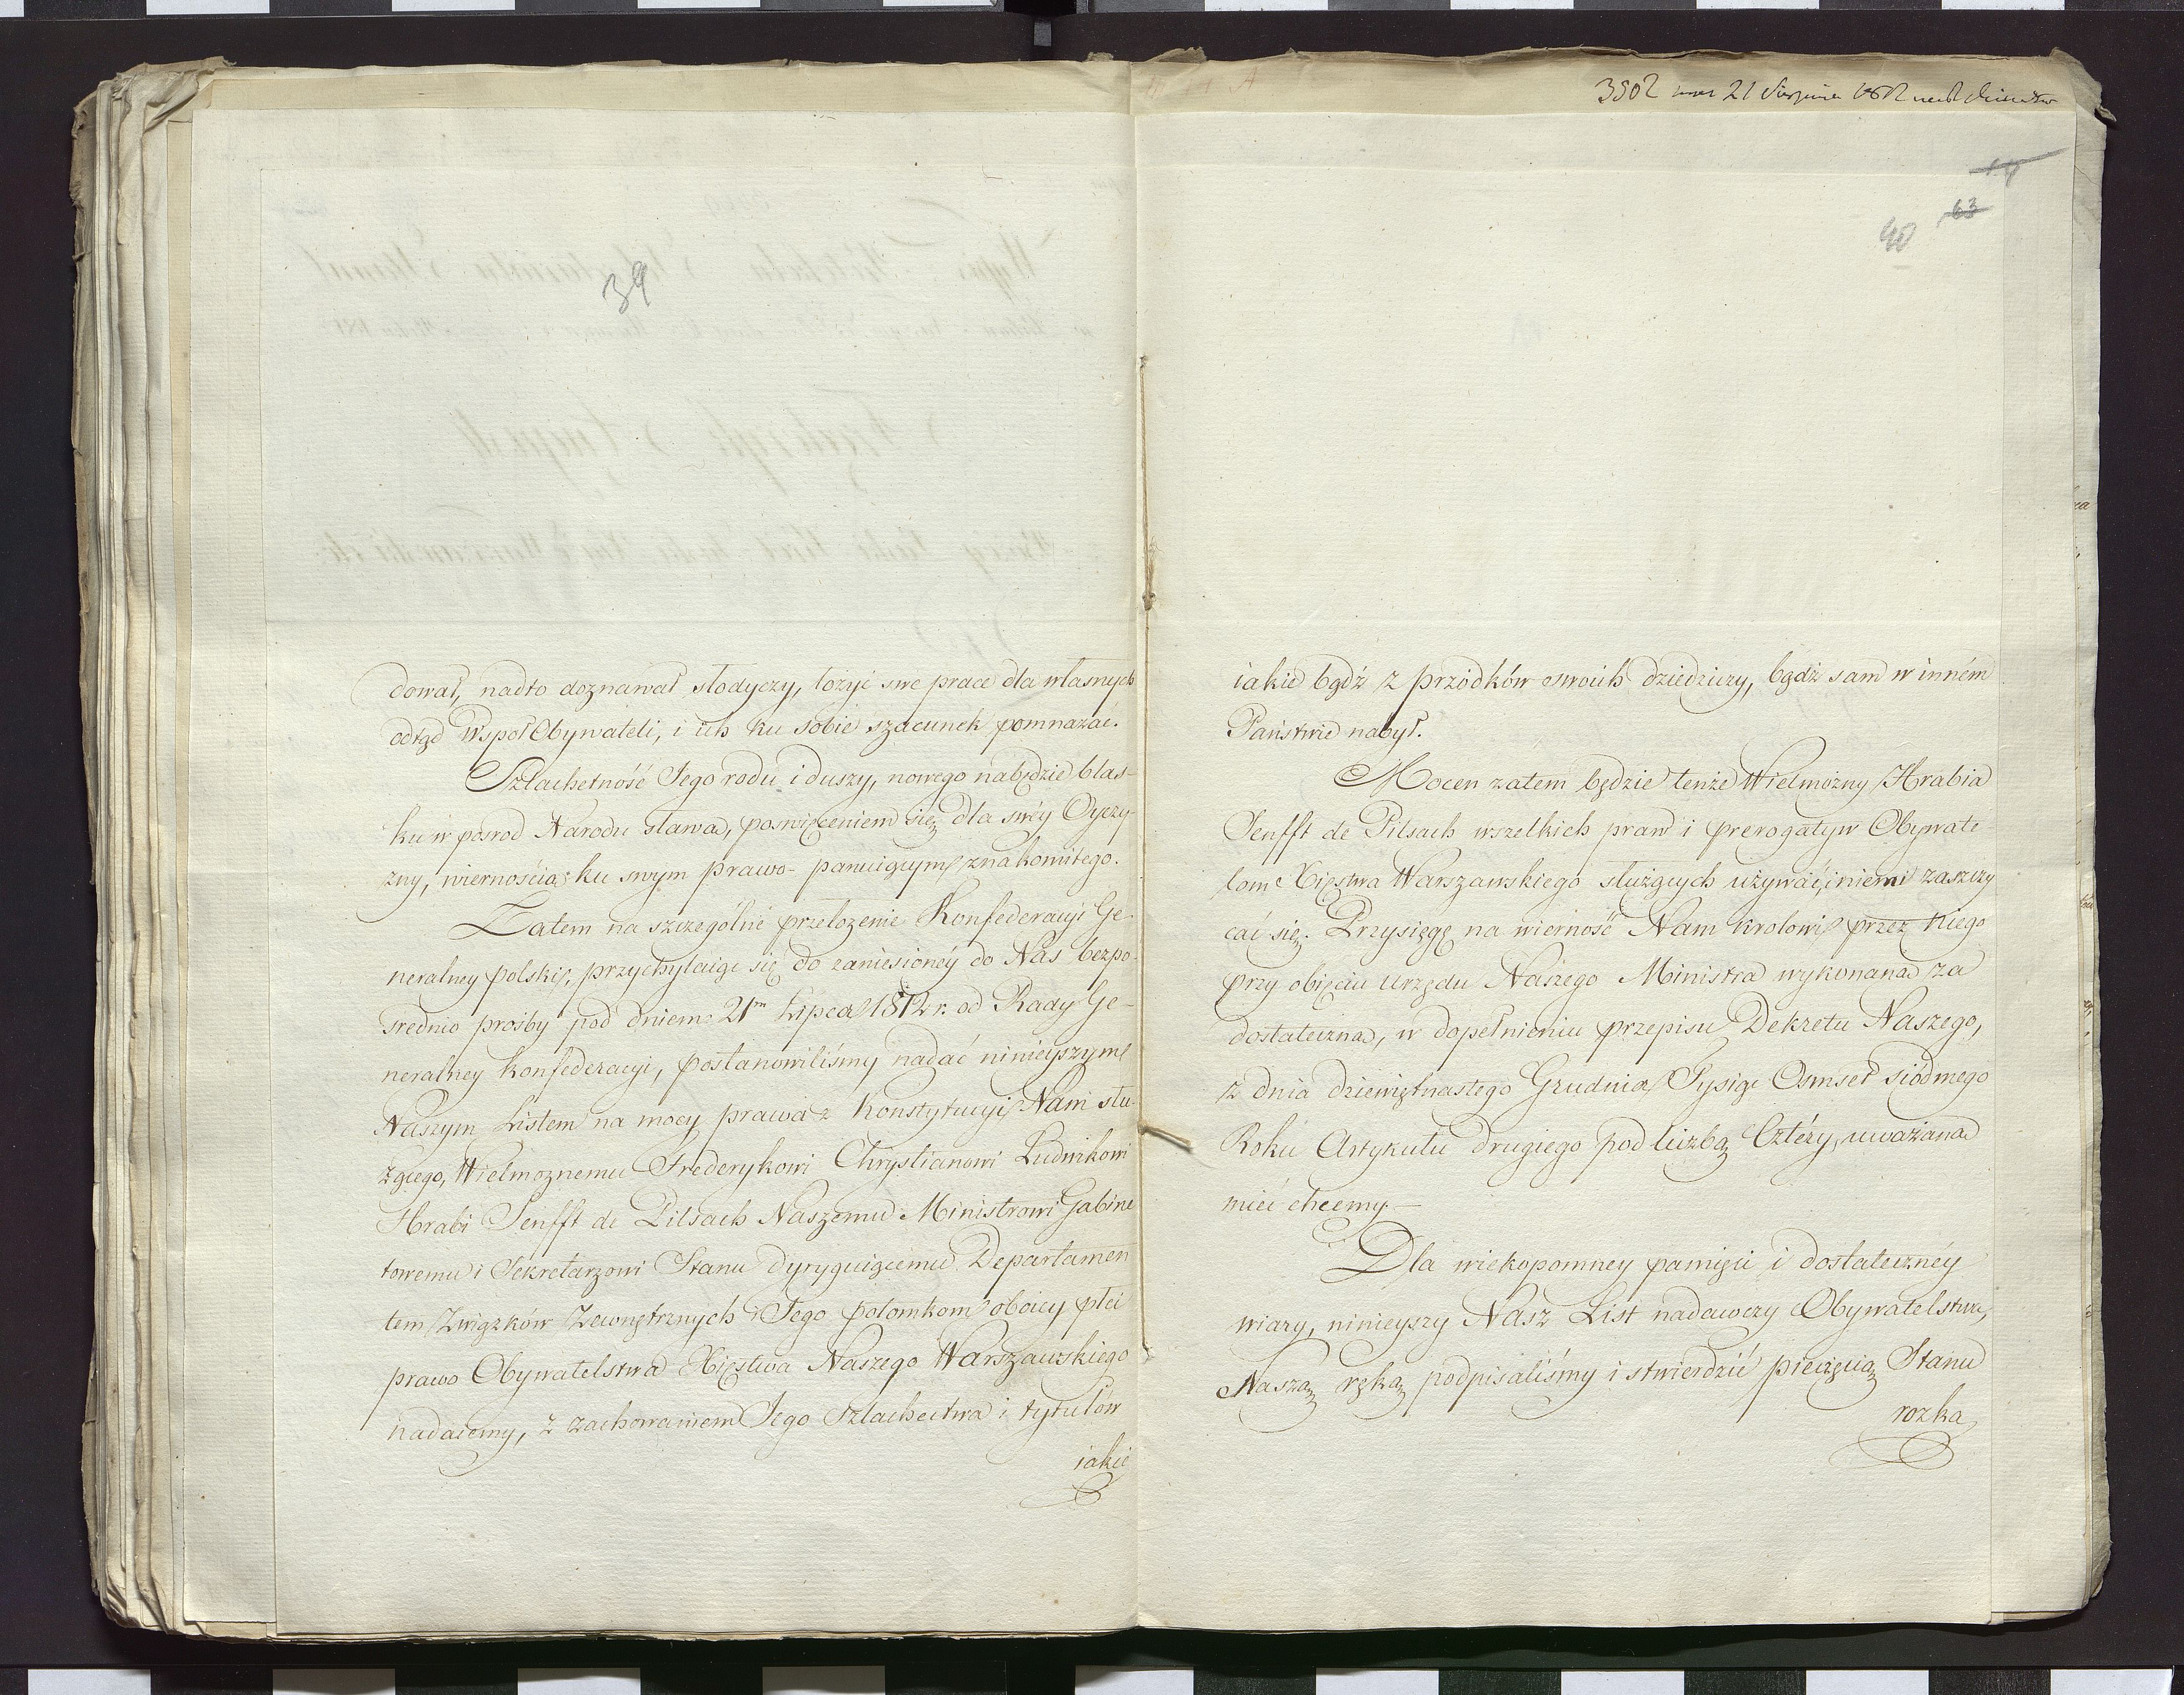 39
dował, nadto doznawał słodyczy, łożyć swe prace dla własnych
odtąd WspołObywateli, i ich ku sobie szacunek pomnażać.
Szlachetność Jego rodu i duszy, nowego nabędzie blas-
ku w pośrod Narodu sława, poswięceniem się dla swéy Oyczy-
zny, wiernością ku swym prawo-panuiącym znakomitego.
Zatem na szczególné przełożenie Konfederacyi Ge-
neralney polskiéy, przychylaiąc się do zaniesionéy do Nas bezpo-
srednio prośby pod dniem 21m Lipca 1812 r. od Rady Ge-
neralney konfederacyi, postanowiliśmy nadać ninieyszym
Naszym Listem na mocy prawa z Konstytucyi Nam słu-
żącego, Wielmoznemu Frederykowi Chrystianowi Ludwikowi
Hrabi Senfft de Pilsach Naszemu Ministrowi Gabine
towemu i Sekretarzowi Stanu dyryguiącemu Departamen
tem Związków Zewnętrznych i Jego potomkom oboiey płci
prawo Obywatelstwa Xięstwa Naszego Warszawskiego
nadaiemy, z zachowaniem Jego Szlachectwa i tytułów
iakie
3502 21 Sierpnia 1812
14
63
40
iakie bądź z przodków swoich dziedziczy, bądź sam w inném
Państwie nabył.
Mocen zatem będzie tenże Wielmożny Hrabia
Senfft de Pilsach wszelkich praw i prerogatyw Obywate
lom Xięstwa Warszawskiego służących używać, i niemi zaszczy
cać się. Przysięgę na wierność Nam krolowi przez niego
przy obięciu urzędu Naszego Ministra wykonaną za
dostateczną, w dopełnieniu przepisu Dekretu Naszego,
z dnia dziewiętnastego Grudnia Tysiąc Osmset siodmego
Roku Artykułu drugiego pod liczbą Cztéry, uważaną
mieć chcemy. —
Dla wiekopomney pamięci i dostatecznéy
wiary, ninieyszy Nasz List nadawczy Obywatelstwa,
Naszą ręką podpisaliśmy i stwierdzić pieczęcią Stanu
rozka